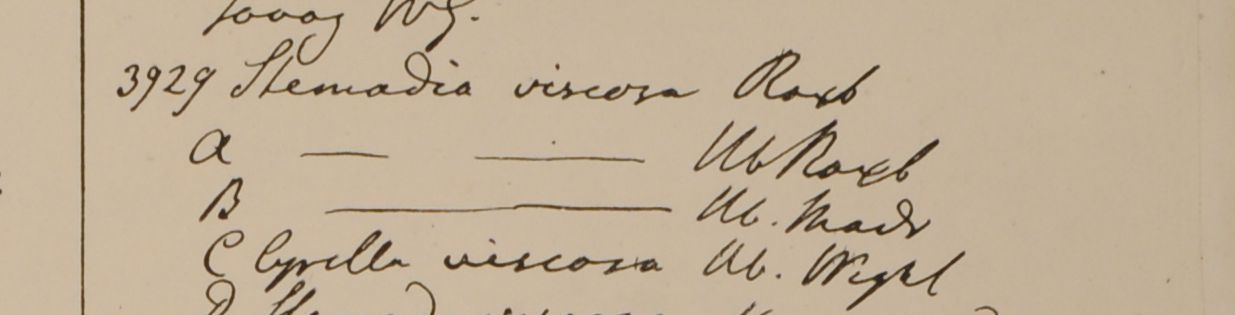 3929 Stemadia viscosa Roxb
A — — Hb Roxb
B — Hb. Madr
C Cyrilla viscosa Hb. Wight
D viscosa